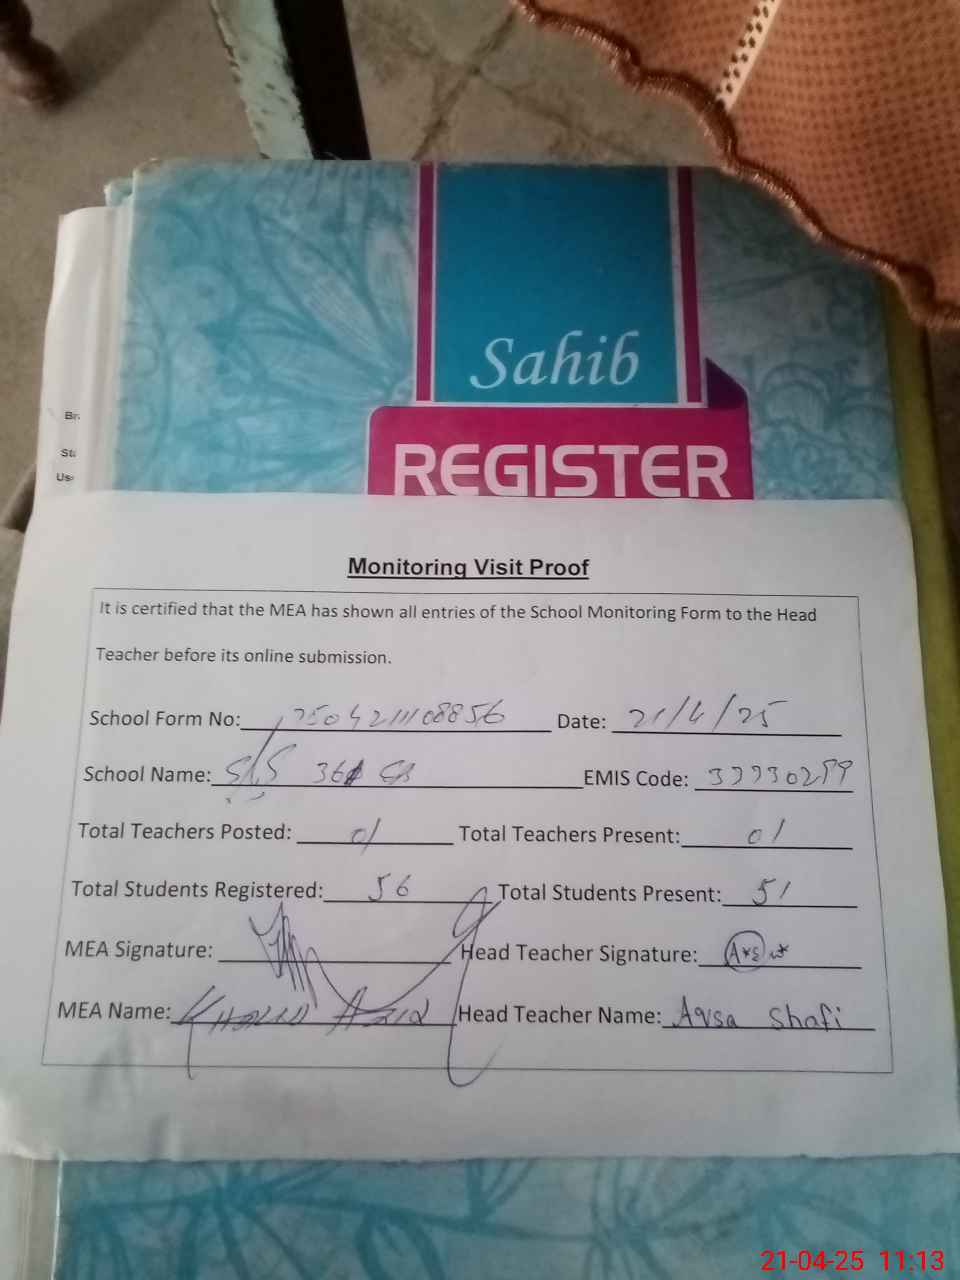 Sahib
REGISTER
Br
St
Us
Monitoring Visit Proof
It is certified that the MEA has shown all entries of the School Monitoring Form to the Head
Teacher before its online submission.
School Form No: Date: 21/4/25
School Name: EMIS Code:
Total Teachers Posted: 01 Total Teachers Present: 01
Total Students Registered: 56 Total Students Present: 51
MEA Signature: Head Teacher Signature:
MEA Name: Khalid Aziz Head Teacher Name: Aqsa Shafi
21-04-25 11:13